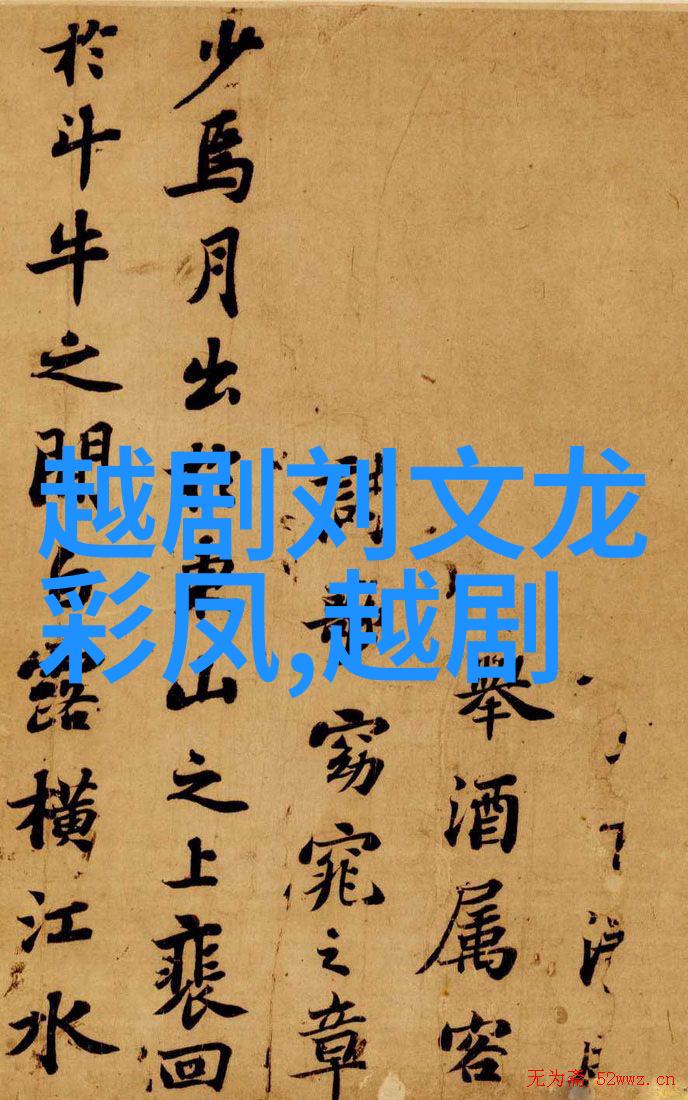 越剧刘文龙
彩凤,越剧
舉酒属客
窈窕之章
少焉月出於東山之上裴回
於斗牛之間白露橫江水
无为斋 52wwz.cn